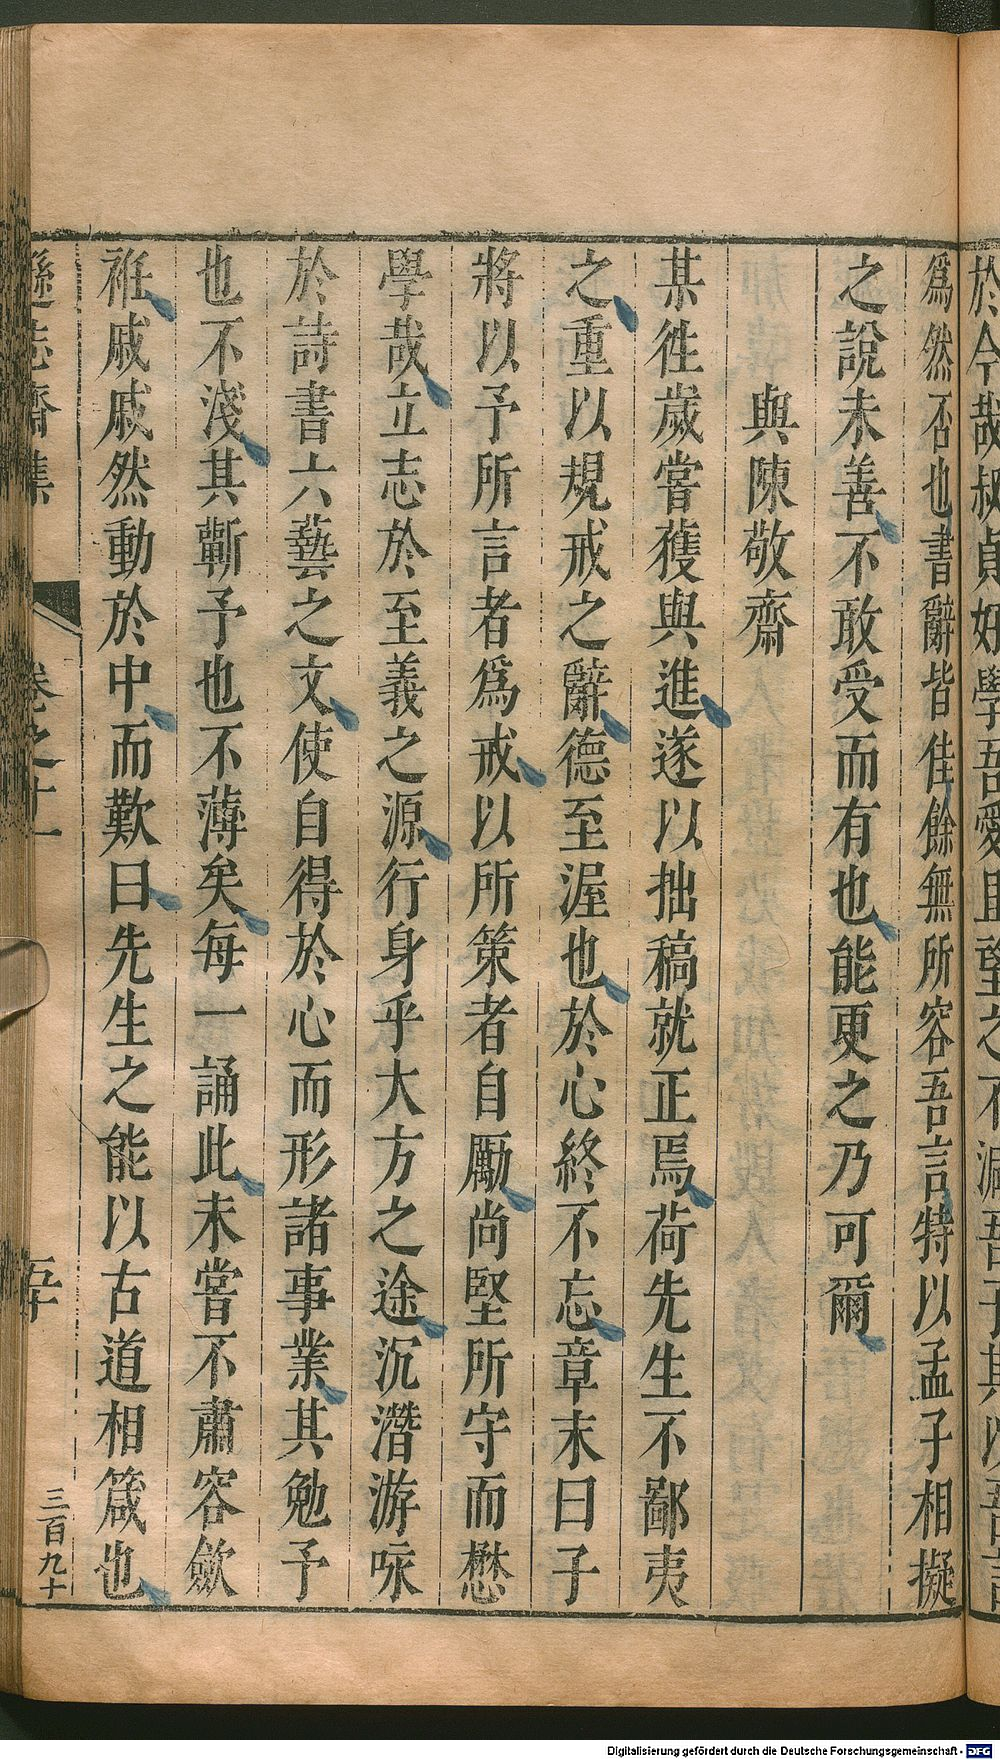 於今哉叔貞好學吾愛且望之不減吾子其以吾言
爲然否也書辭皆佳餘無所容吾言特以孟子相擬
之說未善不敢受而有也能更之乃可爾
與陳敬齋
某徃歲嘗獲與進遂以拙稿就正焉荷先生不鄙夷
之重以規戒之辭德至渥也於心終不忘章末曰子
將以予所言者爲戒以所策者自勵尚堅所守而懋
學哉立志於至義之源行身乎大方之途沉潛游咏
於詩書六藝之文使自得於心而形諸事業其勉予
也不淺其斳予也不薄矣每一誦此未嘗不肅容歛
袵戚戚然動於中而歎曰先生之能以古道相箴也
遜志齋集 卷之十一 五十 三百九十
Digitalisierung gefördert durch die Deutsche Forschungsgemeinschaft - DFG